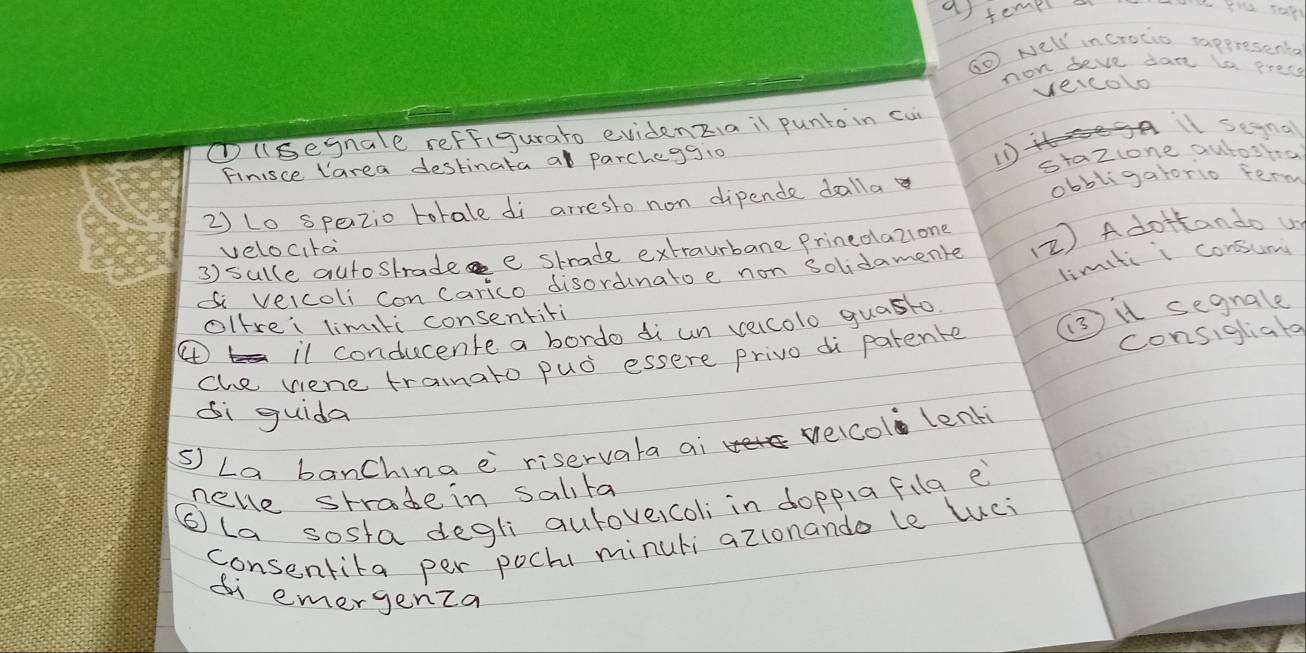 ① Il segnale reffigurato evidenzia il punto in cui
finisce l'area destinata al parcheggio
2) Lo spazio totale di arresto non dipende dalla
velocità
3) sulle autostrade e strade extraurbane
di veicoli con carico disordinato e non solidamente
oltre i limiti consentiti
④ il conducente a bordo di un veicolo guasto.
che viene trainato può essere privo di patente
di guida
5) La banchina è riservata ai veicoli lenti
nelle strade in salita
⑥ La sosta degli autoveicoli in doppia fila è
consentita per pochi minuti azionando le luci
di emergenza
9) tempi
⑩ Nell'incrocio rappresenta
non deve dare la prece
veicolo
11) il segnal
stazione autostra
obbligatorio ferm
12) Adottando un
limiti i consumi
⑬ il segnale
consigliata